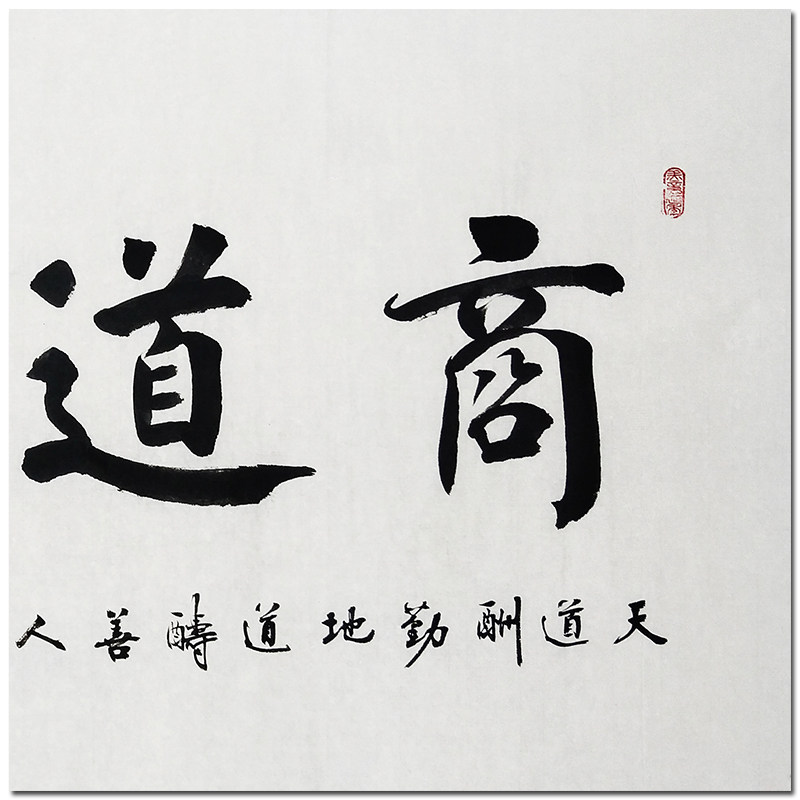 商道
天道酬勤地道醻善人